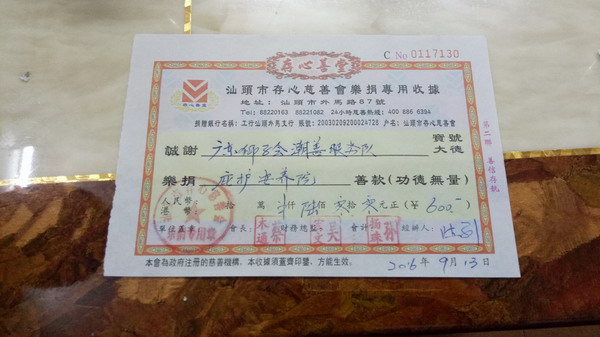 存心善堂
C No 0117130
存心慈善
汕頭市存心慈善會樂捐專用收據
地址: 汕頭市外馬路87號
Tel: 88220163 88221062 24小時慈善熱線: 400 886 6394
捐贈銀行名稱: 工行汕頭外馬支行 賬號: 2003020920002472​8 户名: 汕頭市存心慈善會
誠謝 潮善服務队 寶號 大德
樂捐 庇护安养院 善款(功德無量)
人民幣 港幣 拾 萬 仟 陆 佰 零 拾 零 元正 (¥ 600.-)
單位蓋章 會長: 財務總監: 會計: 經辦人:
本會為政府注册的慈善機構。本收據須蓋齊印鑒, 方能生效。
2016年9月13日
第二聯 善信存執